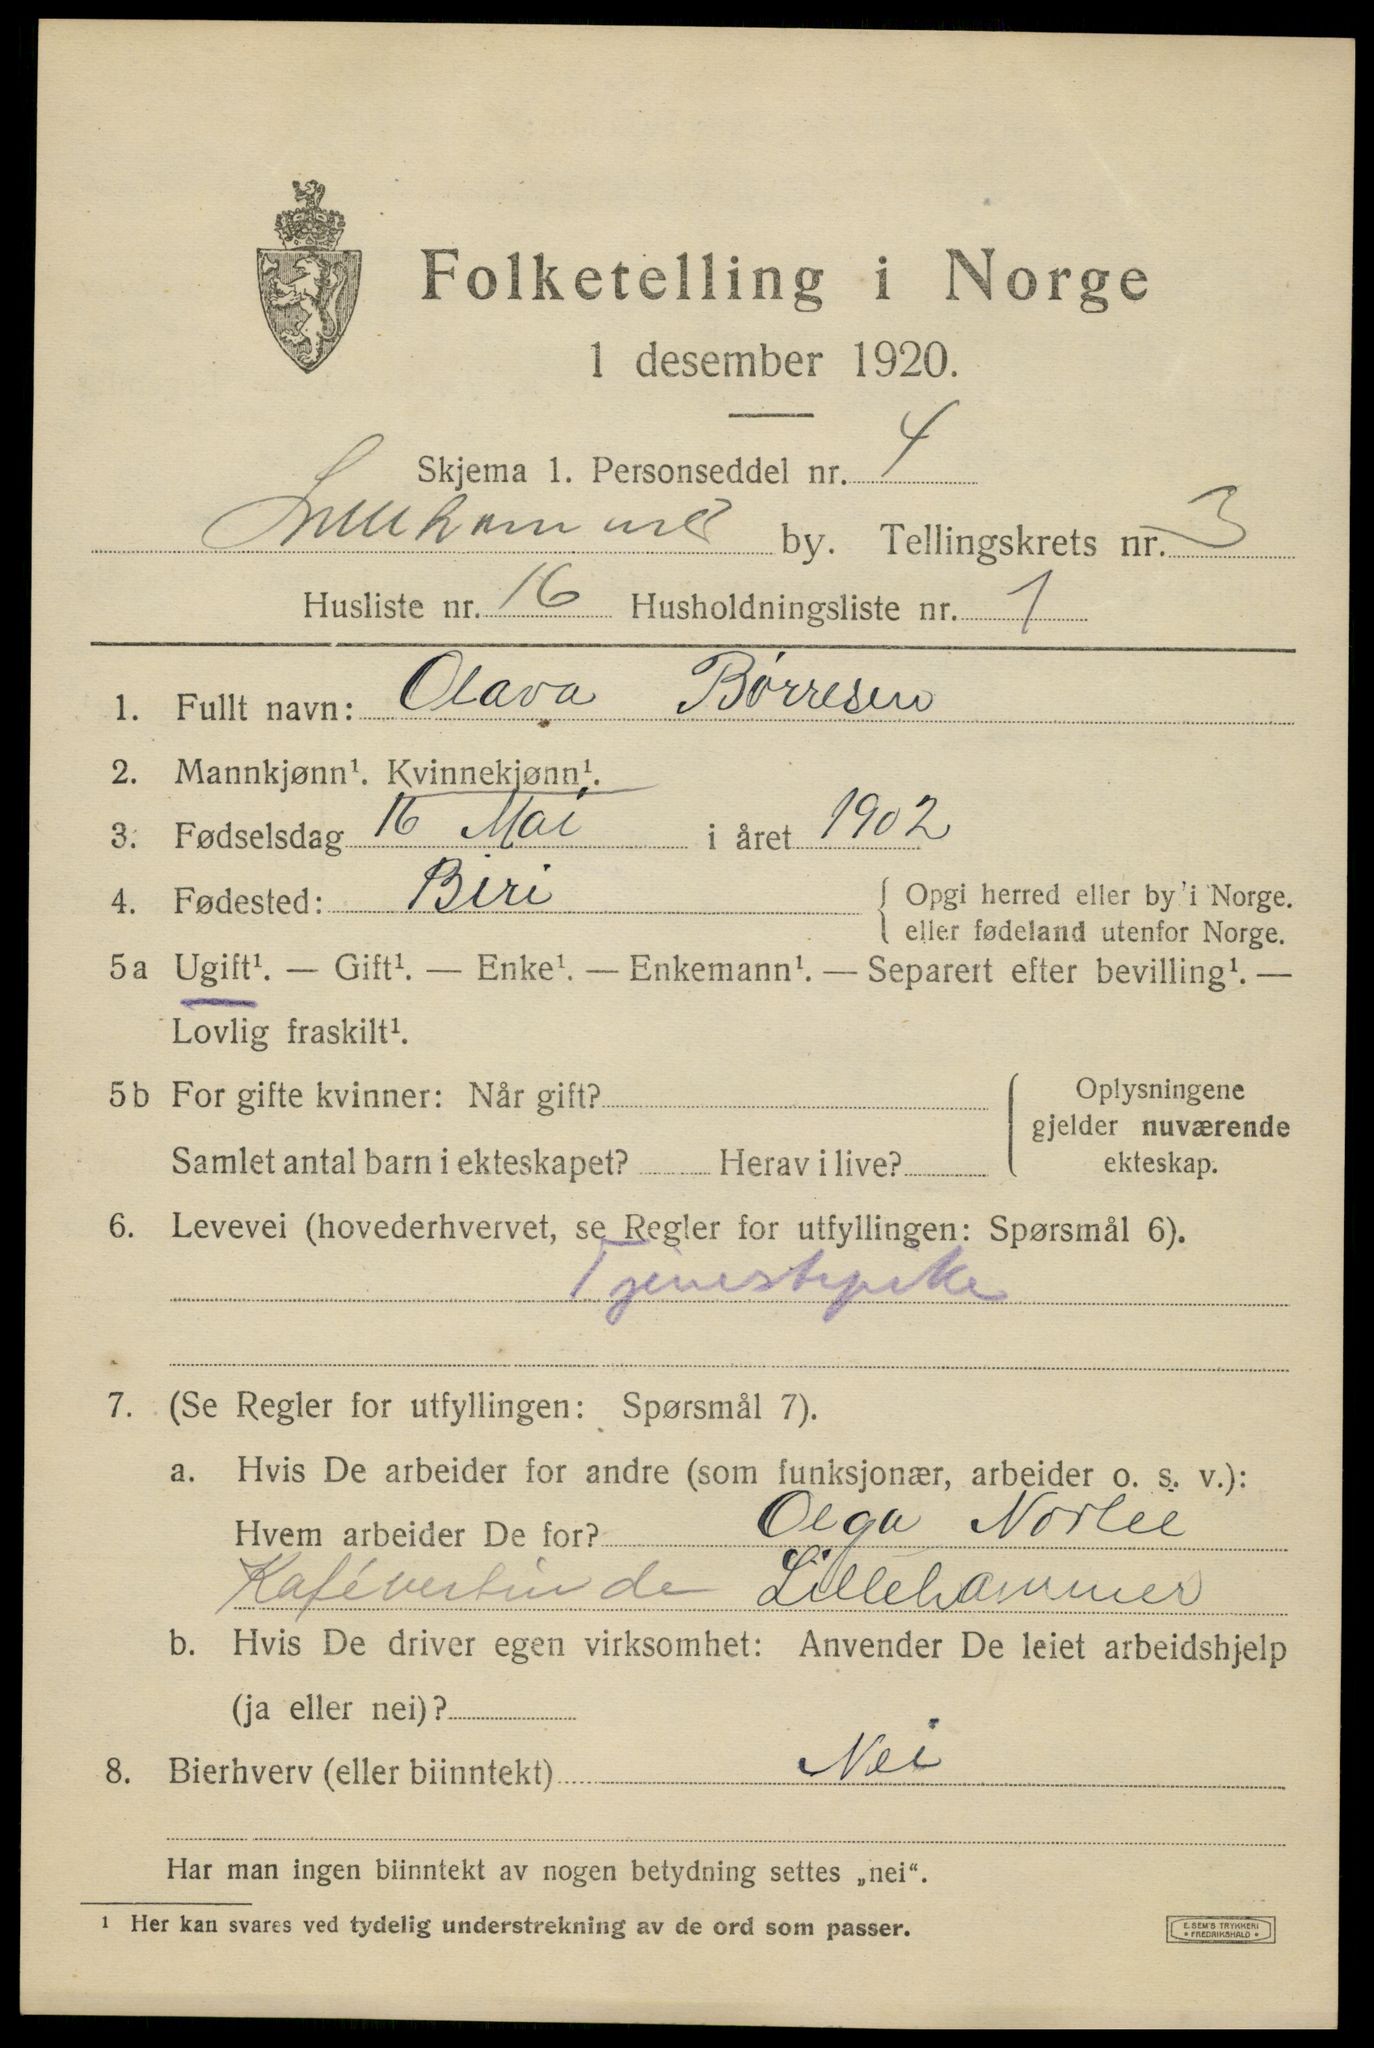 Folketelling i Norge
1 desember 1920.
Skjema 1. Personseddel nr. 4
Lillehammer by. Tellingskrets nr. 3
Husliste nr. 16 Husholdningsliste nr. 1
1. Fullt navn: Olava Børresen
2. Mannkjønn¹. Kvinnekjønn¹.
3. Fødselsdag 16 Mai i året 1902
4. Fødested: Biri { Opgi herred eller by i Norge.
eller fødeland utenfor Norge.
5a Ugift¹. — Gift¹. — Enke¹. — Enkemann¹. — Separert efter bevilling¹. —
Lovlig fraskilt¹.
5b For gifte kvinner: Når gift?
Samlet antal barn i ekteskapet? Herav i live?
Oplysningene
gjelder nuværende
ekteskap.
6. Levevei (hovederhvervet, se Regler for utfyllingen: Spørsmål 6).
Tjenestepike
7. (Se Regler for utfyllingen: Spørsmål 7).
a. Hvis De arbeider for andre (som funksjonær, arbeider o. s. v.):
Hvem arbeider De for? Olga Norlie
Kafévertinde Lillehammer
b. Hvis De driver egen virksomhet: Anvender De leiet arbeidshjelp
(ja eller nei)?
8. Bierhverv (eller biinntekt) Nei
Har man ingen biinntekt av nogen betydning settes „nei“.
¹ Her kan svares ved tydelig understrekning av de ord som passer.
E. SEM'S TRYKKERI
• FREDRIKSHALD •